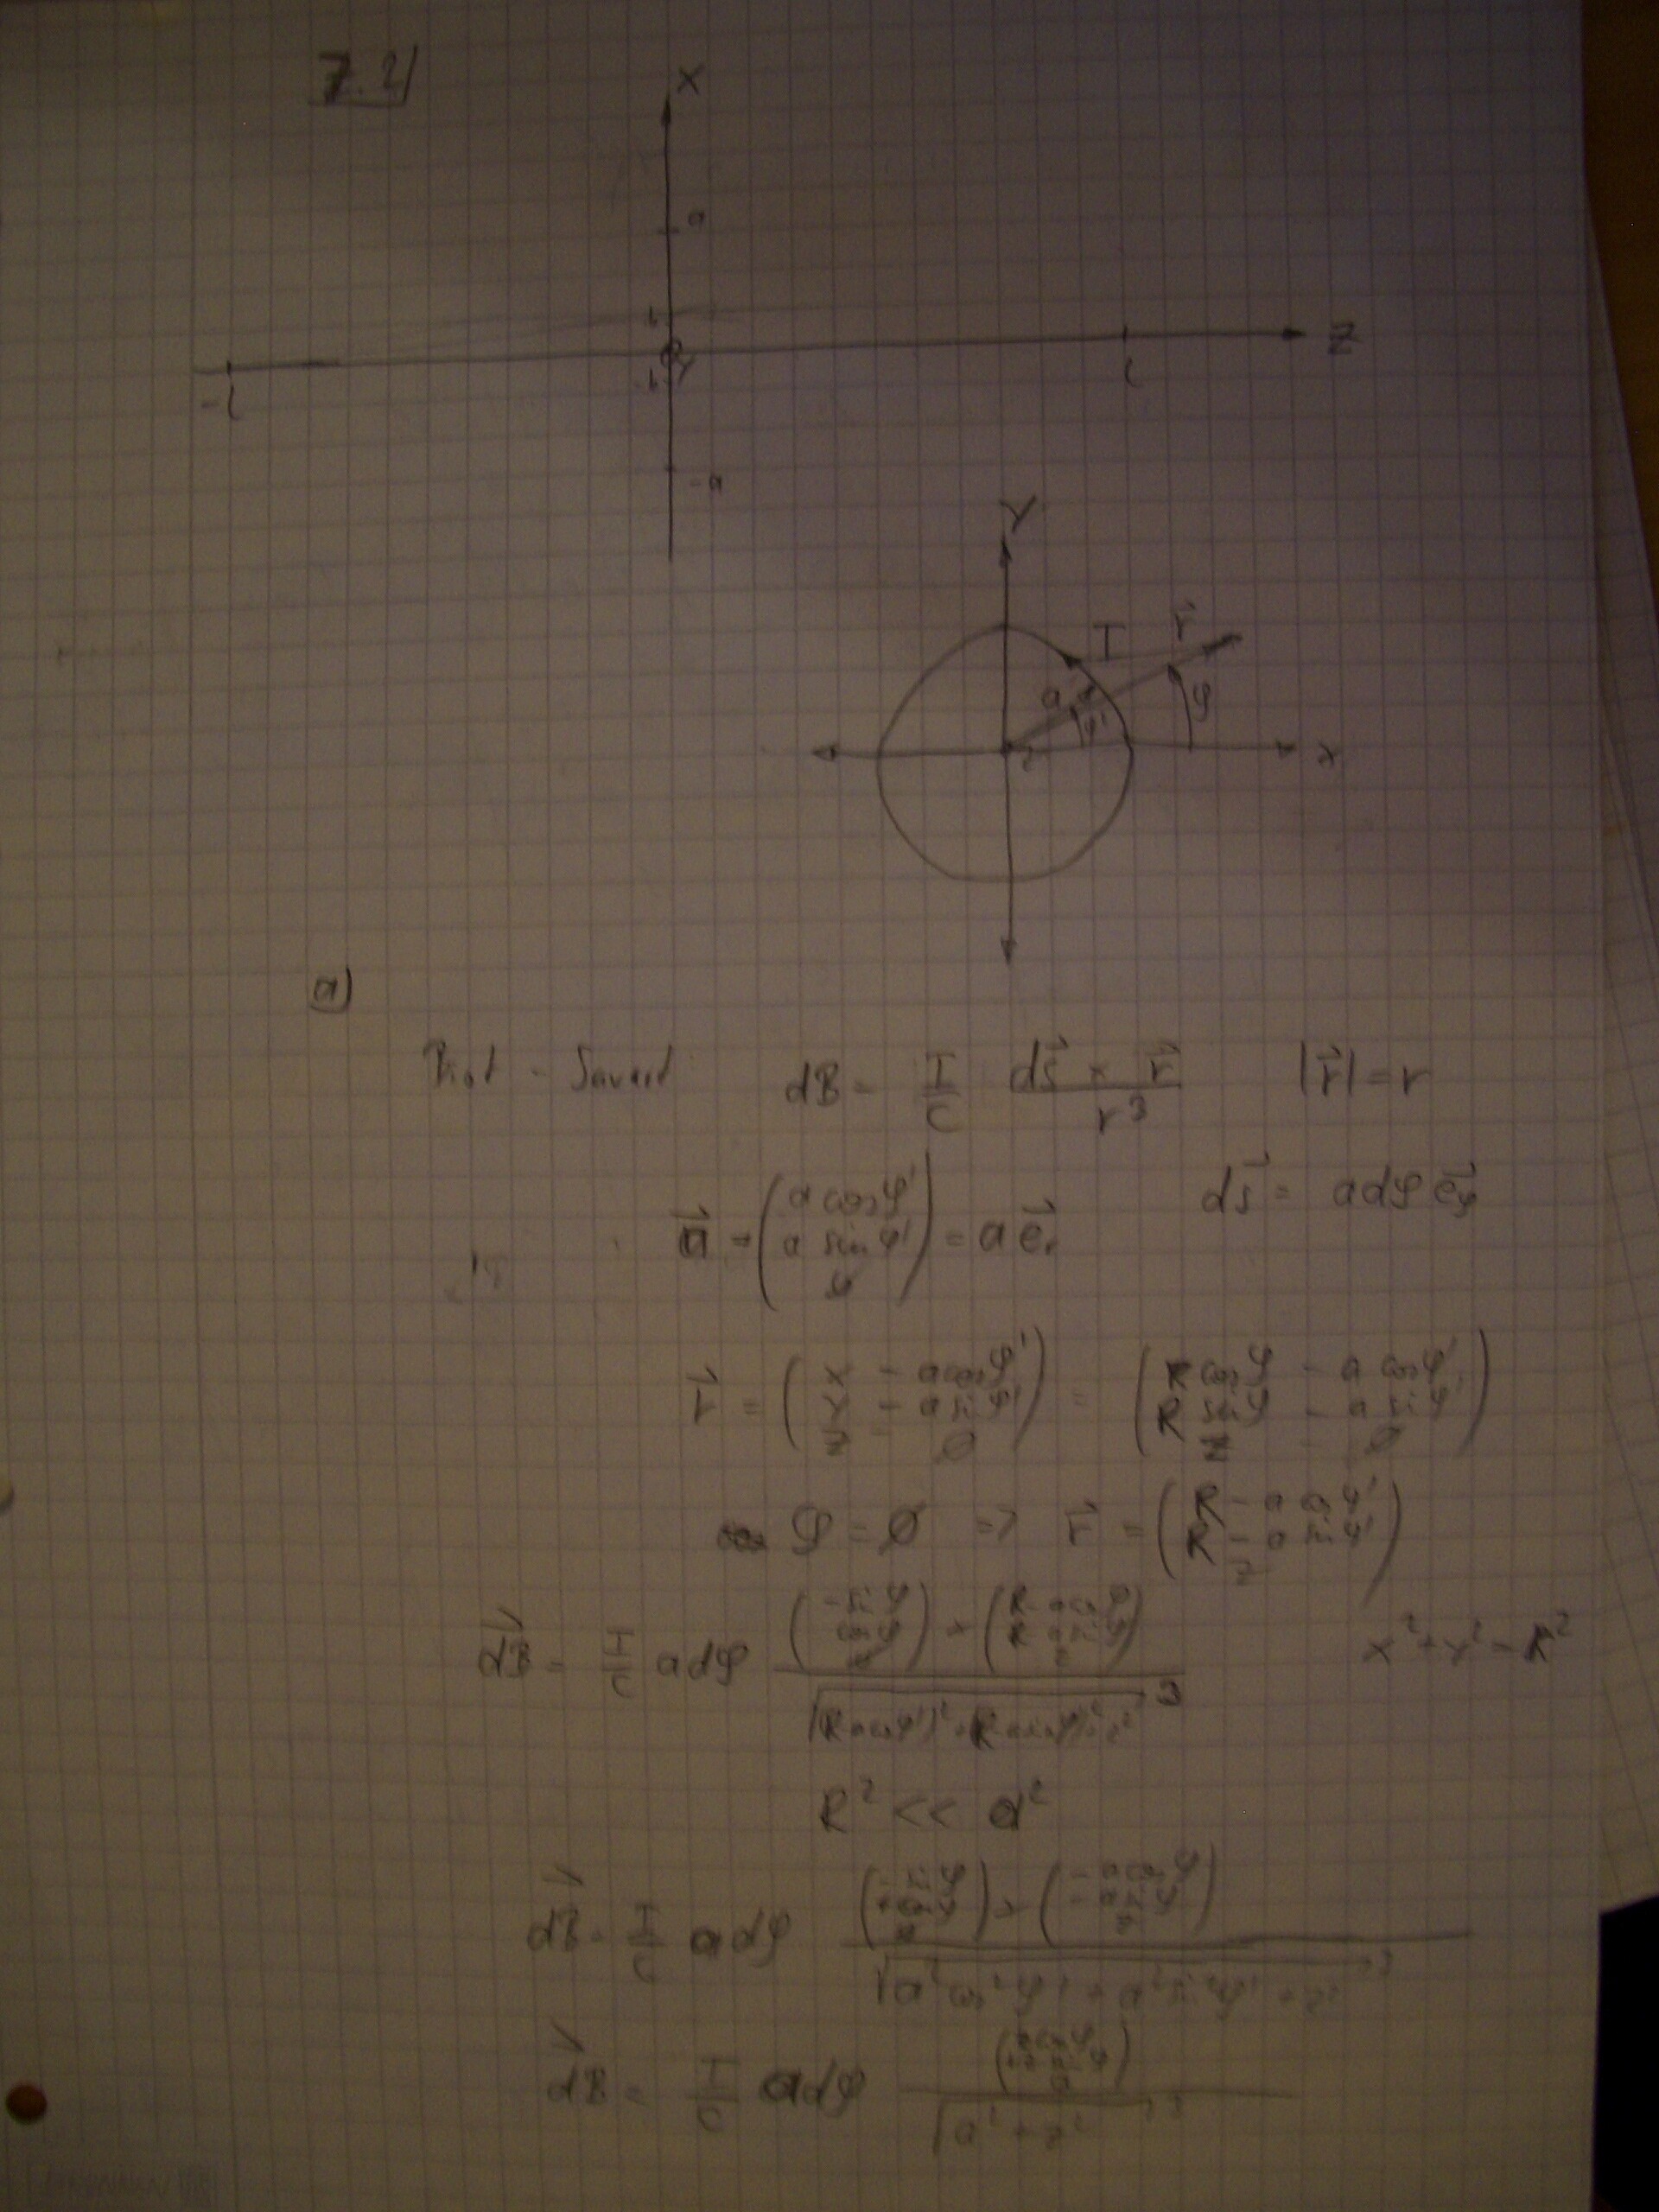 7.2)
X
a
-b
Y
-l
l
Z
-a
Y
I
r⃗
a
φ'
φ
z
x
a)
Biot - Savart dB = I/c (ds⃗ × r⃗)/r³ |r⃗| = r
a⃗ = (a cosφ', a sinφ', φ) = a e⃗r ds⃗ = a dφ e⃗φ
r⃗ = (x - a cosφ', y - a sinφ', z - 0) = (R cosφ - a cosφ', R sinφ - a sinφ', z - 0)
φ = 0 => r⃗ = (R - a cosφ', R - a sinφ', z)
dB⃗ = I/c a dφ ((-sinφ, cosφ, 0) × (R - a cosφ, R - a sinφ, z))/√((R - a cosφ')² + (R - a sinφ')² + z²)³ x² + y² = R²
R² << a²
dB⃗ = I/c a dφ ((-sinφ, +cosφ, 0) × (-a cosφ, -a sinφ, z))/√(a² cos²φ' + a² sin²φ' + z²)³
dB⃗ = I/c a dφ /√(a² + z²)³